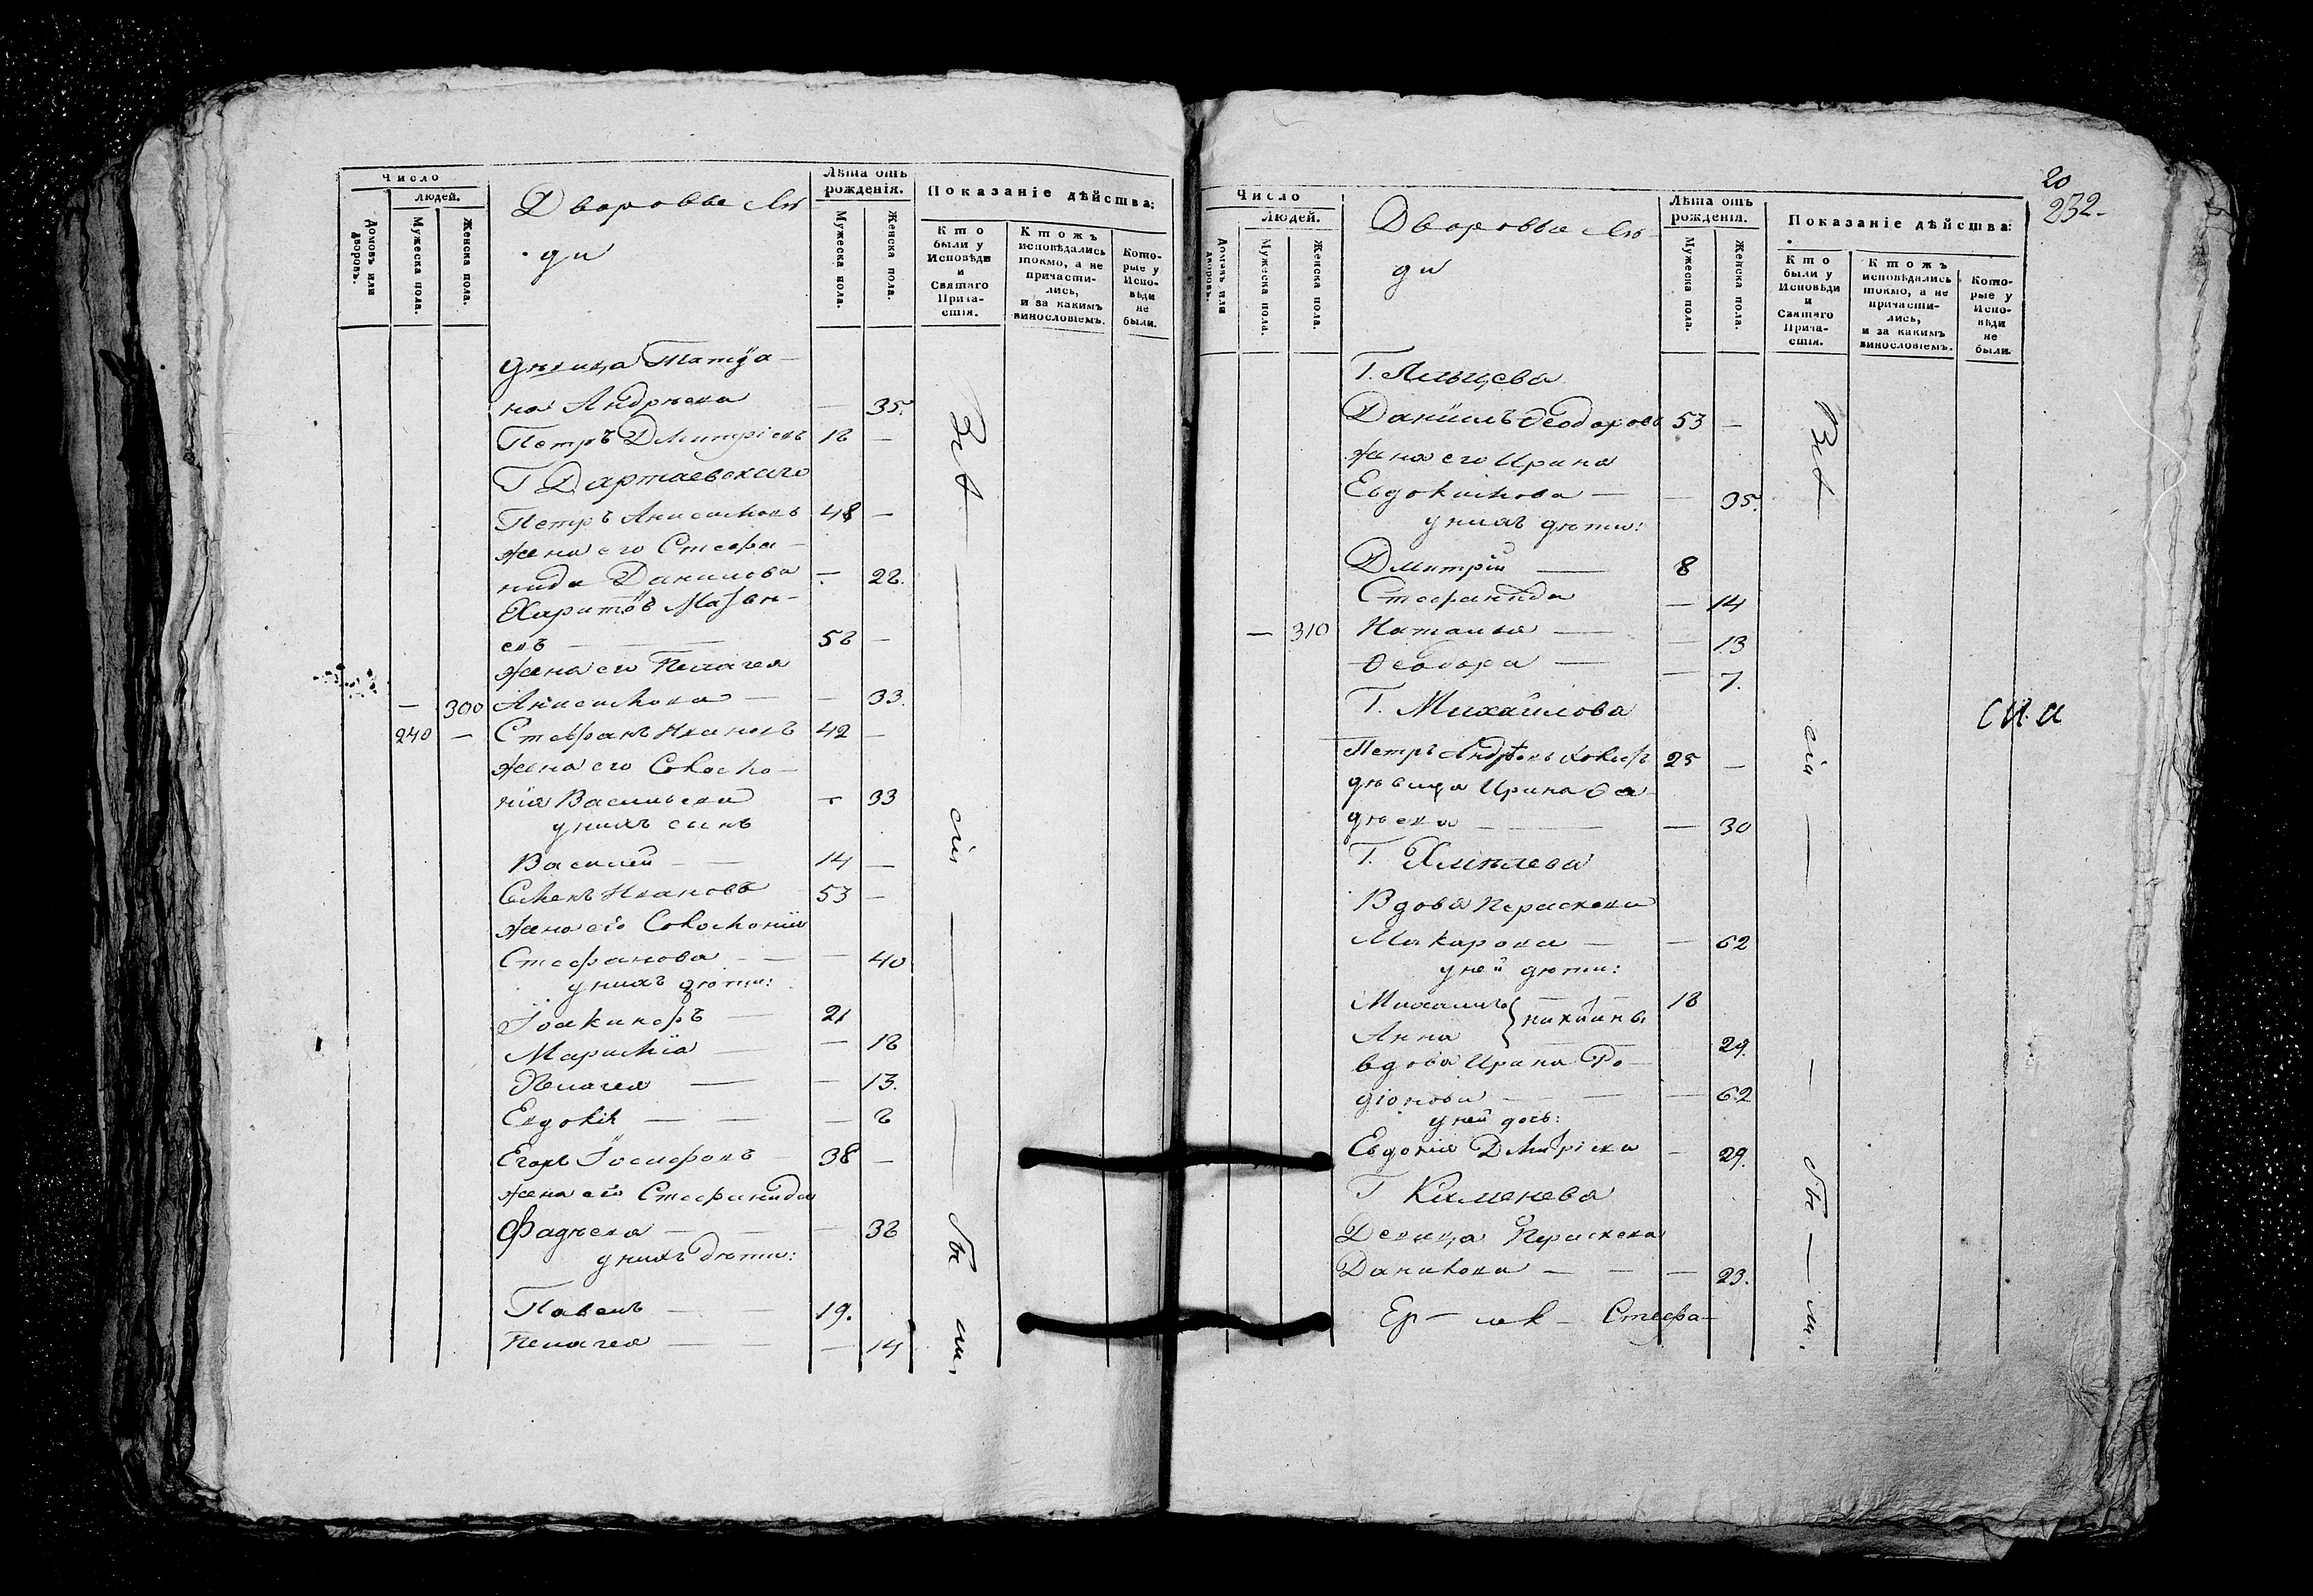 Число
людей.
Домовъ или дворовъ.
Мужеска пола.
Женска пола.
Дворовые Лю
ди
Лѣта отъ рожденія.
Мужеска пола.
Женска пола.
Показаніе дѣйства:
Кто были у Исповѣди и Святаго Прича- стія.
Ктожъ исповѣдались токмо, а не причасти- лись, и за какимъ винословіемъ.
Кото- рые у Испо- вѣди не были.
дѣвица Татіа-
на Андрѣева — 35.
Петръ Дмитріевъ 18 —
Г Дартаевскаго
Петръ Анисимовъ 48 —
жена его Стефа-
нида Данилова — 28.
Харитонъ
евъ — 58 —
жена его Пелагея
— 300 Анисимова — — 33.
240 — Стефанъ Ивановъ 42 —
жена его Соломо-
нія Васильева — 33
у нихъ сынъ
Василей — 14 —
Семенъ Ивановъ 53 —
жена его Соломонія
Стефанова — — 40
у нихъ дѣти:
Іоакинфъ — 21
Маримія — — 18
Пелагея — — 13.
Евдокія — — — 8
Егоръ Іосифовъ 38 —
жена его Стефанида
Фадѣева — — 38
у нихъ дѣти:
Павелъ — 19.
Пелагея — — 14
Всѣ — сіи — бы — ли
20
232.
Число
Людей.
Домовъ или дворовъ.
Мужеска пола.
Женска пола.
Дворовые Лю-
ди
Лѣта отъ рожденія.
Мужеска пола.
Женска пола.
Показаніе дѣйства:
Кто были у Исповѣди и Святаго Прича- стія.
Ктожъ исповѣдались токмо, а не причасти- лись, и за какимъ винословіемъ.
Кото- рые у Испо- вѣди не были.
Г. Яльцева
Даніилъ Ѳеодоровъ 53 —
жена его Ирина
Евдокимова — — 35.
у нихъ дѣти:
Дмитрій — 8
Стефанида — 14
— 310 Наталья — — 13
Ѳеодора — — 7.
Г. Михайлова
Петръ Андрѣевъ 25 —
дѣвица Ирина Ѳа-
дѣева — — 30
Г. Хмѣлева
Вдова Параскева
Макарова — — 62
у ней дѣти:
Михаилъ — 18
Анна — 29.
вдова Ирина Ро-
діонова — — 62
у ней дочь:
Евдокія Дмитріева — 29.
Г Каменева
Девица Параскева
Данилова — — 23.
Ер — ей — Стефа-
Всѣ — сіи — бы — ли.